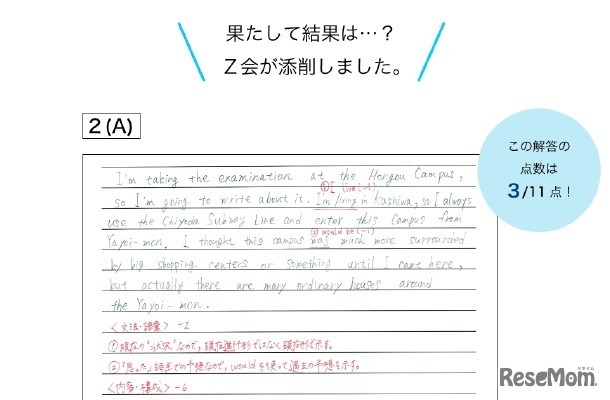 果たして結果は…？
Z会が添削しました。
2(A)
この解答の
点数は
3/11点！
I'm taking the examination at the Hongou Campus,
①I live (-1)
so I'm going to write about it. I'm living in Kashiwa, so I always
use the Chiyoda Subway Line and enter this campus from
② would be (-1)
Yayoi-mon. I thought this campus was much more surrounded
by big shopping centers or something until I came here,
but actually there are many ordinary houses around
the Yayoi-mon.
〈文法・語彙〉 -2
①現在の"状況"なので、現在進行形ではなく現在形で示す。
②「思った」時点での予想なので、wouldを使って過去の予想を示す。
〈内容・構成〉 -6
ReseMom.
リセマム